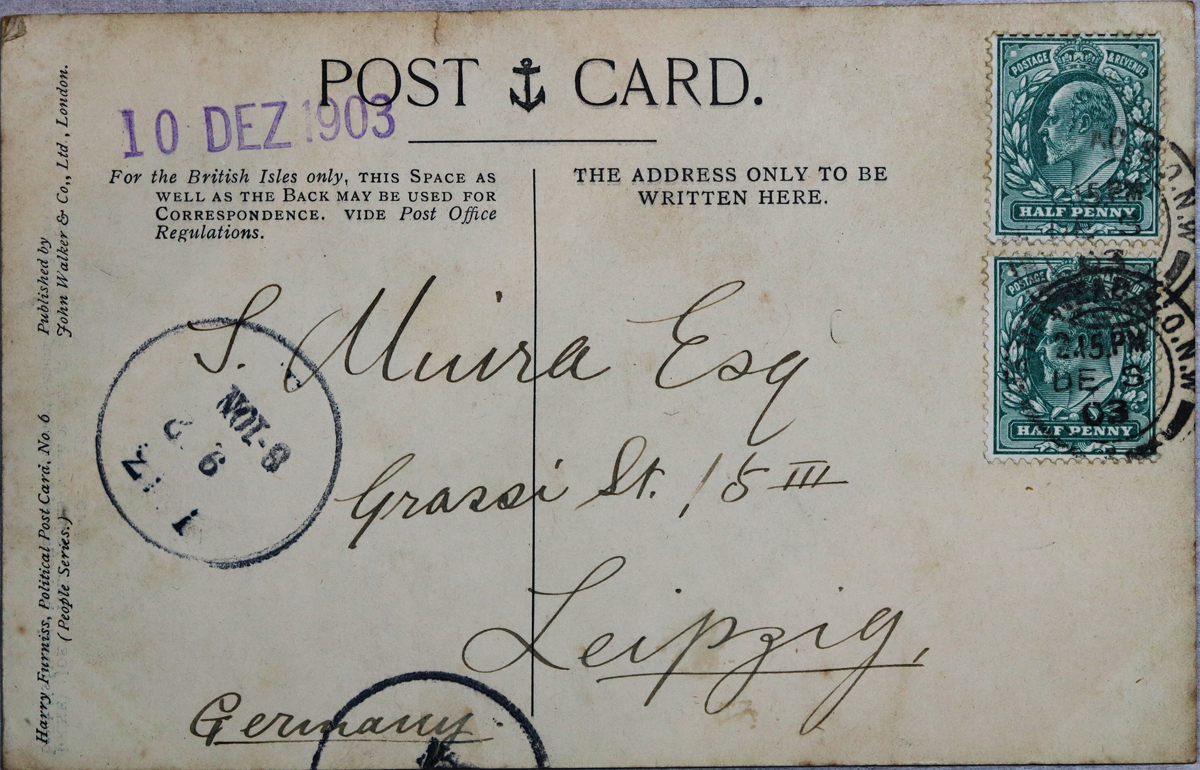 POST CARD.
10 DEZ 1903
For the British Isles only, THIS SPACE AS
WELL AS THE BACK MAY BE USED FOR
CORRESPONDENCE. VIDE Post Office
Regulations.
THE ADDRESS ONLY TO BE
WRITTEN HERE.
Published by
John Walker & Co., Ltd., London.
Harry Furniss, Political Post Card, No. 6
(People Series.)
POSTAGE & REVENUE
HALF PENNY
2.15.PM
O.N.W
POSTAGE
HALF PENNY
2.15.PM
DE 8
03
O.N.W
S. Muira Esq
Grassi St. 15 III
Leipzig,
Germany.